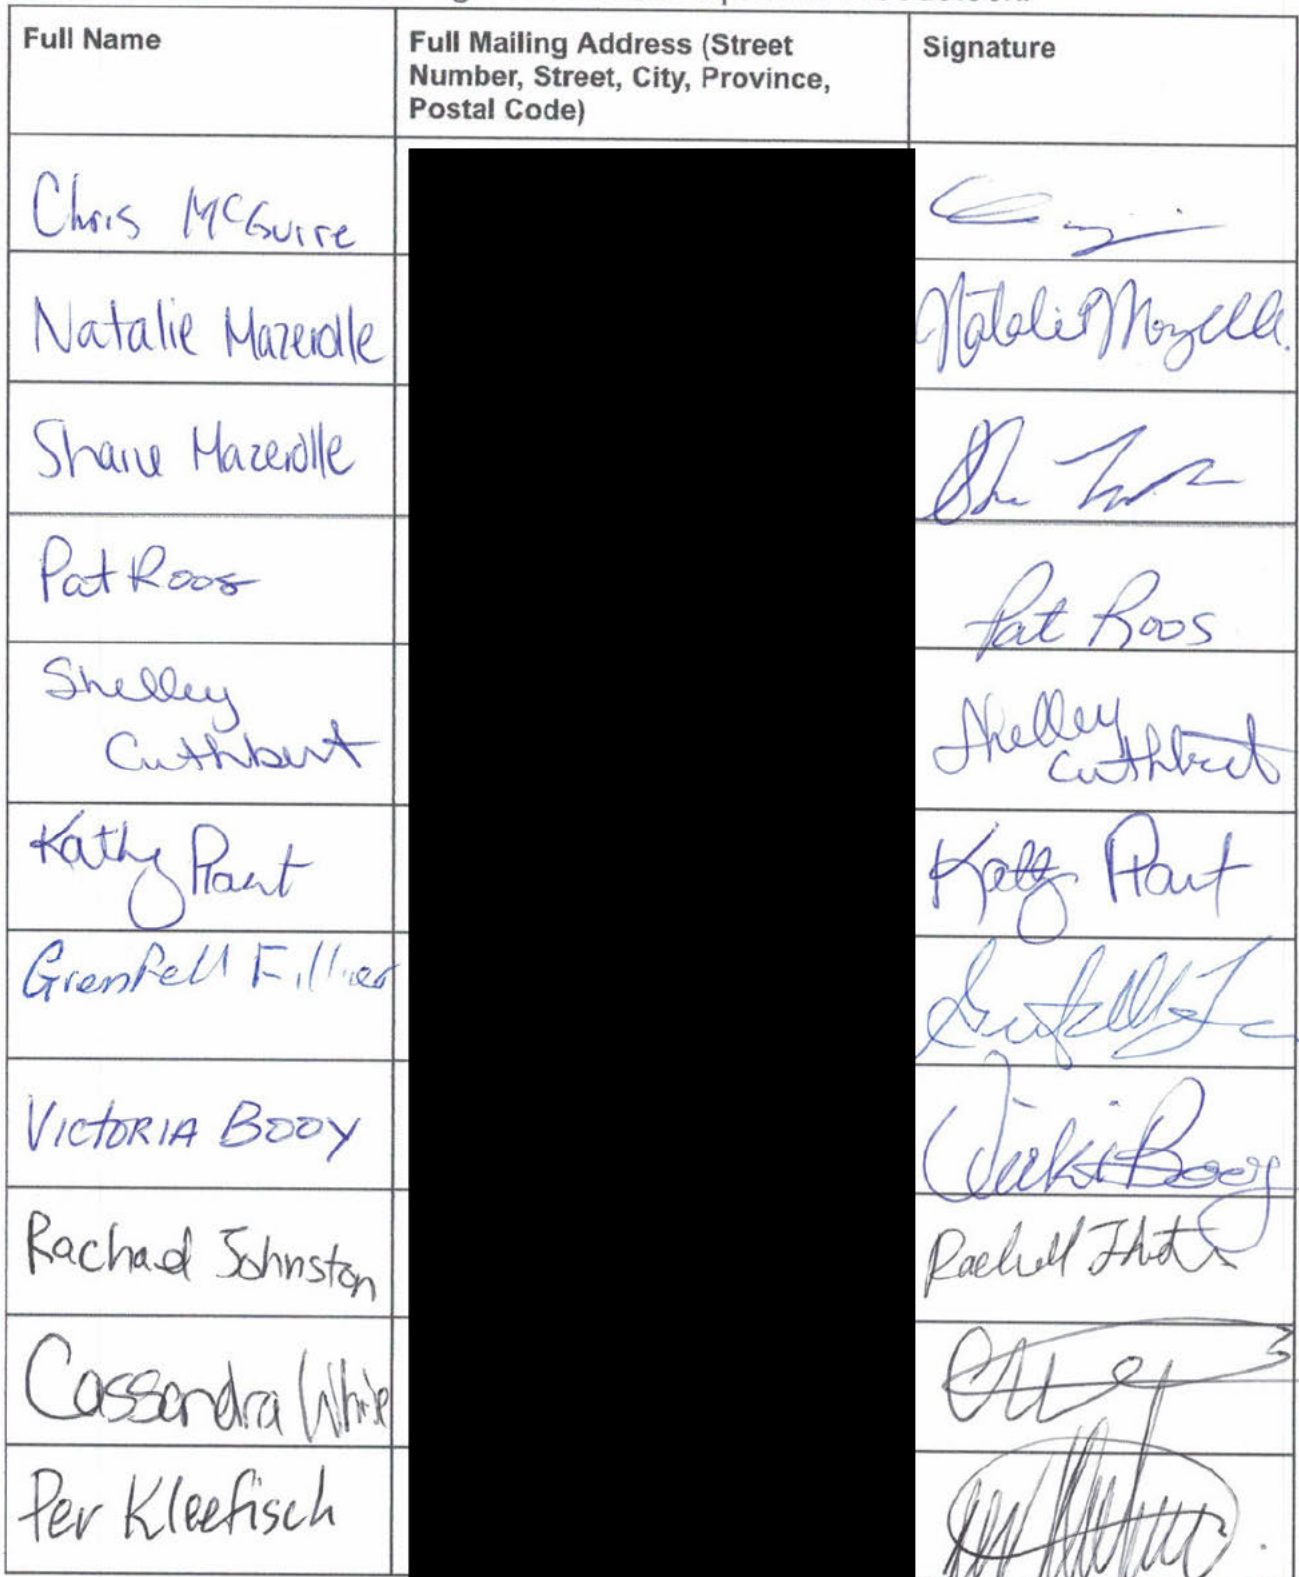 Full Name
Full Mailing Address (Street
Number, Street, City, Province,
Postal Code)
Signature
Chris McGuire
Natalie Mazerolle
Natalie Mazerolle
Shane Mazerolle
Pat Roos
Pat Roos
Shelley
Cuthbert
Shelley
Cuthbert
Kathy Plant
Kathy Plant
Grenfell Fillier
VICTORIA BOOY
Vicki Booy
Rachael Johnston
Cassandra White
Per Kleefisch